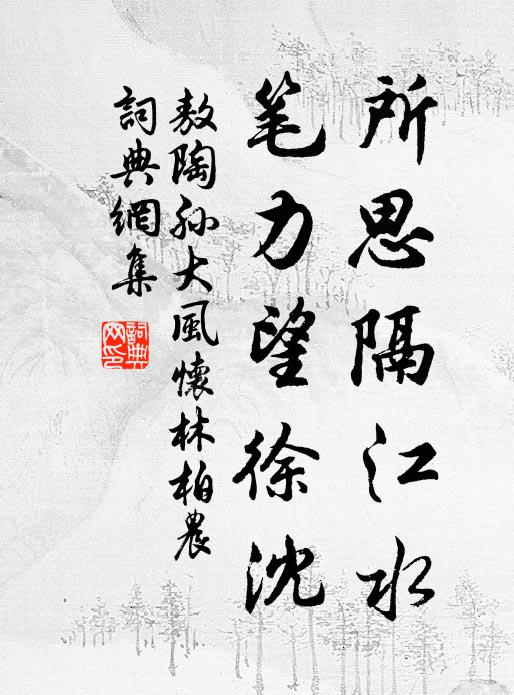 所思隔江水
笔力望徐沈
敖陶孙大風懷林柏農
詞典網集
詞典網印